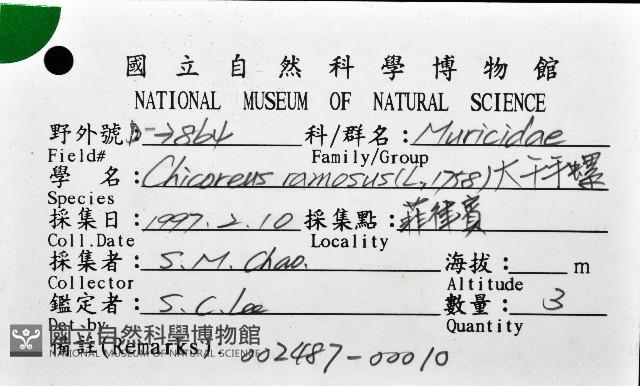 國立自然科學博物館
NATIONAL MUSEUM OF NATURAL SCIENCE
野外號: 科/群名: Muricidae
Field# Family/Group
學 名: Chicoreus ramosus (L, 1758) 大千手螺
Species
採集日: 1997.2.10 採集點: 菲律賓
Coll.Date Locality
採集者: S.M.Chao. 海拔: m
Collector Altitude
鑑定者: S.C.Lee 數量: 3
Det.by Quantity
國立自然科學博物館
NATIONAL MUSEUM OF NATURAL SCIENCE
備註(Remarks) 002487-00010